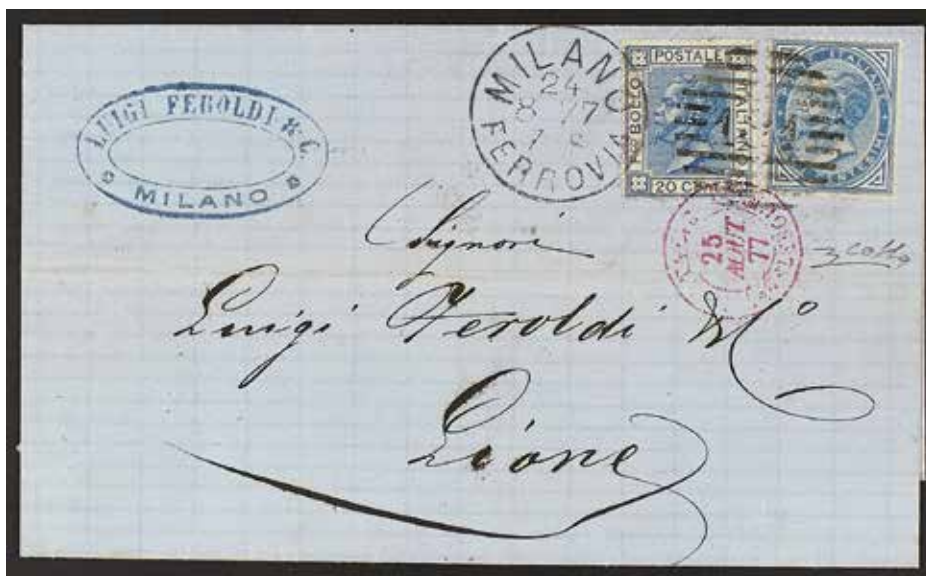 LUIGI FEROLDI & C.
MILANO
MILANO
24
8 77
FERROVIA
POSTALE
BOLLO
ITALIANO
20 C
25
AOUT
77
Signori
Luigi Feroldi & Cº
Lione